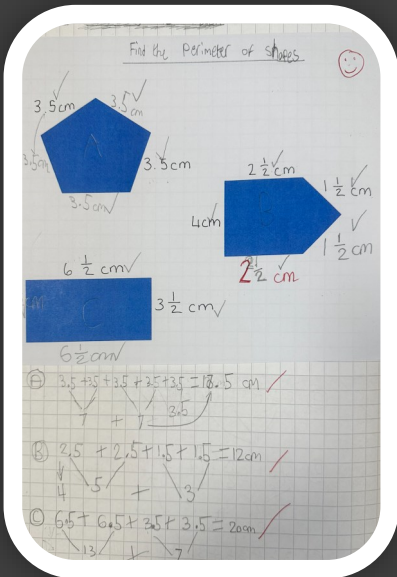 Find the Perimeter of Shapes
3.5cm
3.5cm
3.5cm
3.5cm
3.5cm
2 1/2 cm
1 1/2 cm
4cm
1 1/2 cm
2 1/2 cm
6 1/2 cm
3 1/2 cm
6 1/2 cm
A 3.5+3.5+3.5+3.5+3.5=18.5 cm
7 + 7 3.5
B 2.5 + 2.5+1.5+1.5=12cm
4 5 + 3
C 6.5+6.5+3.5+3.5=20cm
13 + 7